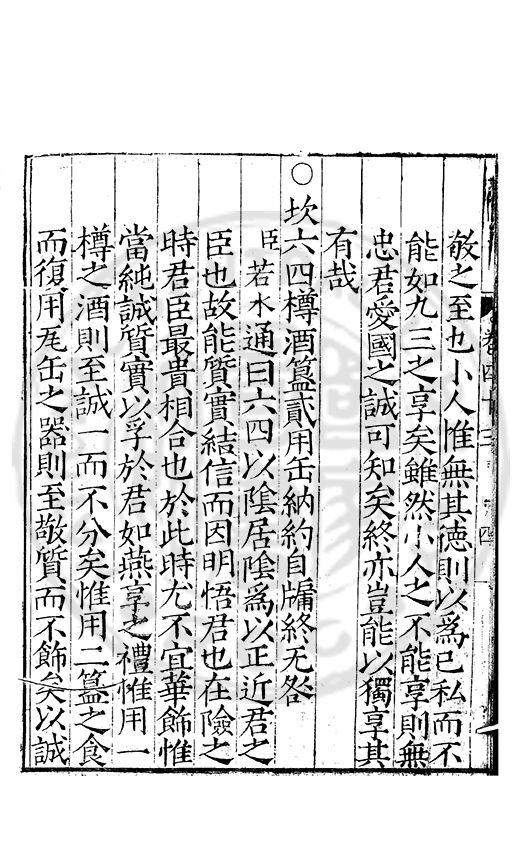 敬之至也小人惟無其德則以爲己私而不
能如九三之享矣雖然小人之不能享則無
忠君愛國之誠可知矣終亦豈能以獨享其
有哉
○坎六四樽酒簋貳用缶納約自牖終无咎
臣若水通曰六四以陰居陰爲以正近君之
臣也故能質實結信而因明悟君也在險之
時君臣最貴相合也於此時尤不宜華飾惟
當純誠質實以孚於君如燕享之禮惟用一
樽之酒則至誠一而不分矣惟用二簋之食
而復用瓦缶之器則至敬質而不飾矣以誠